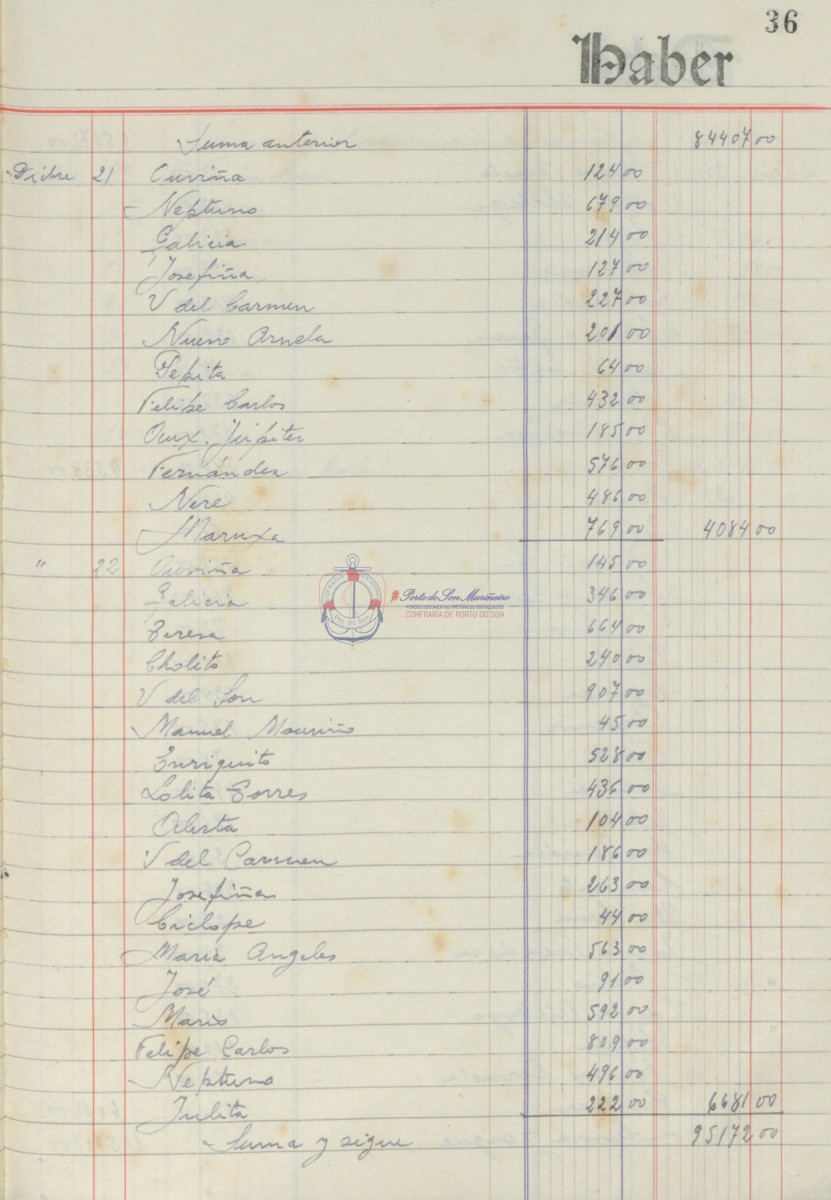 36
Haber
Suma anterior 84407 00
Dicbre 21 Curiña 124 00
Neptuno 679 00
Galicia 214 00
Josefiña 127 00
V del Carmen 227 00
Nuevo Arnela 201 00
Pepita 64 00
Felipe Carlos 432 00
Aux. Júpiter 185 00
Fernández 576 00
Nere 486 00
Maruxa 769 00 4084 00
" 22 Curiña 145 00
Galicia 346 00
Teresa 664 00
Cholito 240 00
V del Son 907 00
Manuel Mouriño 45 00
Enriquito 528 00
Lolita Torres 436 00
104 00
V del Carmen 186 00
Josefiña 263 00
Ciclope 44 00
Maria Angeles 563 00
José 91 00
Mario 592 00
Felipe Carlos 809 00
Neptuno 496 00
Julita 222 00 6681 00
Suma y sigue 95172 00
#Porto do Son Mariñeiro
CONFRARÍA DE PORTO DO SON